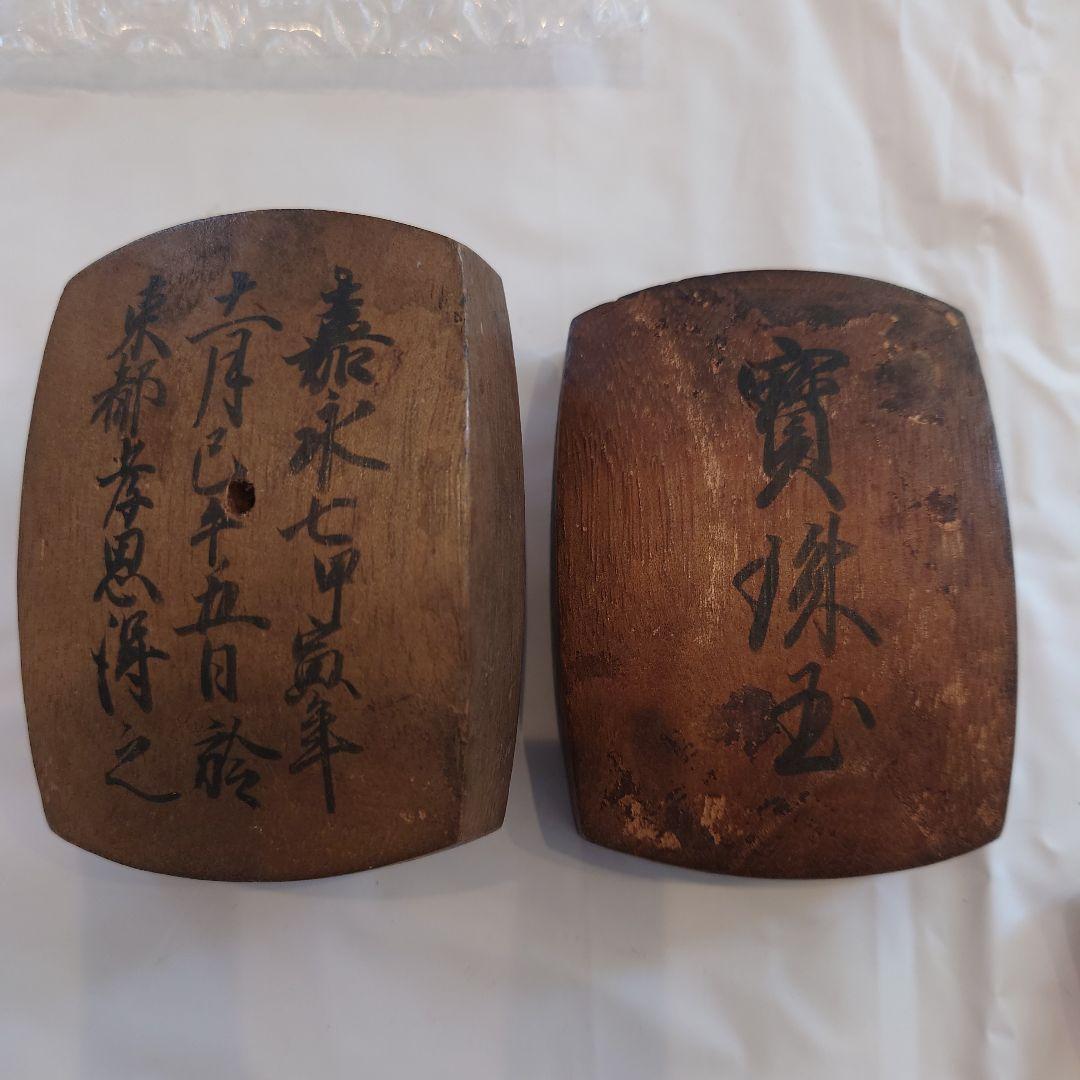 嘉永七甲寅年
十一月己午五日於
東都孝思得之
寶珠玉